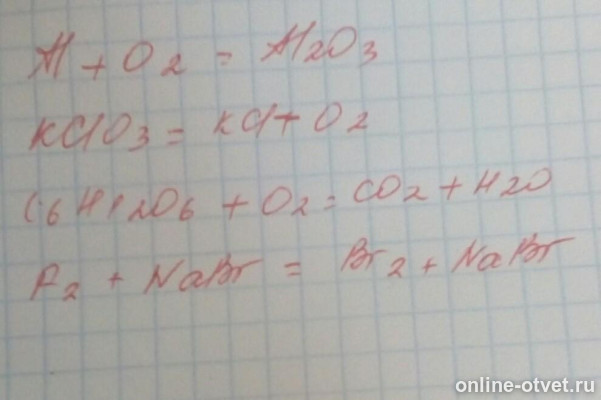 Al + O2 = Al2O3
KClO3 = KCl + O2
C6H12O6 + O2 = CO2 + H2O
F2 + NaBr = Br2 + NaBr
online-otvet.ru